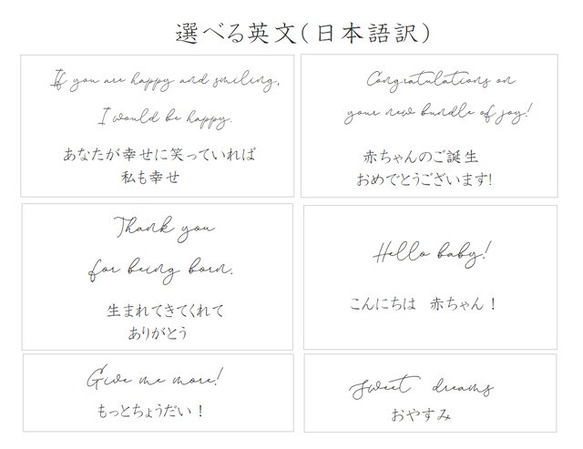 選べる英文(日本語訳)
If you are happy and smiling,
I would be happy.
あなたが幸せに笑っていれば
私も幸せ
Congratulations on
your new bundle of joy!
赤ちゃんのご誕生
おめでとうございます!
Thank you
for being born.
生まれてきてくれて
ありがとう
Hello baby!
こんにちは　赤ちゃん！
Give me more!
もっとちょうだい！
Sweet dreams
おやすみ